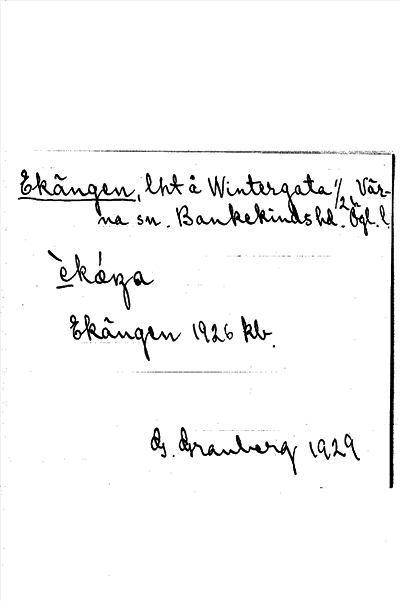 Ekängen, lht å Wintergata 1/2 h Vår-
na sn. Bankekinds hd. Ögl. l.
Ekängen 1926 kb.
G. Granberg 1929